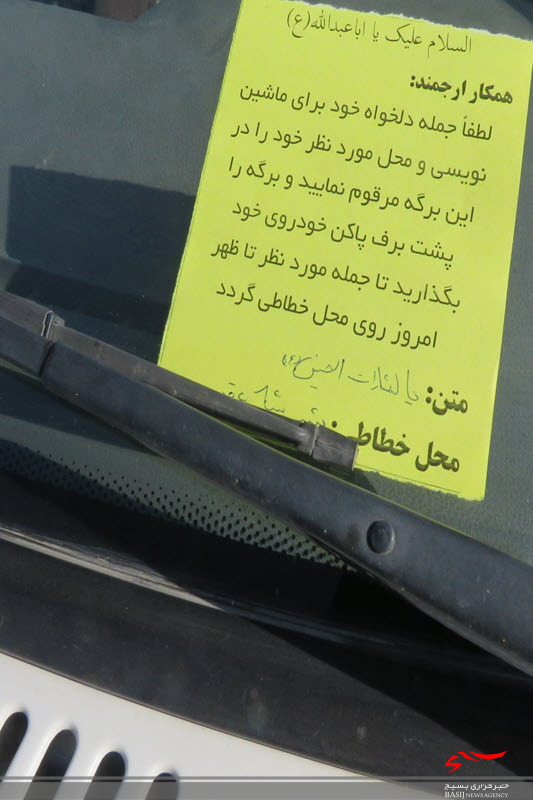 السلام علیک یا اباعبدالله(ع)
همکار ارجمند:
لطفاً جمله دلخواه خود برای ماشین
نویسی و محل مورد نظر خود را در
این برگه مرقوم نمایید و برگه را
پشت برف پاکن خودروی خود
بگذارید تا جمله مورد نظر تا ظهر
امروز روی محل خطاطی گردد
متن: یا لثارات الحسین
محل خطاطی: شیشه
خبرگزاری بسیج
BASIJ NEWS AGENCY